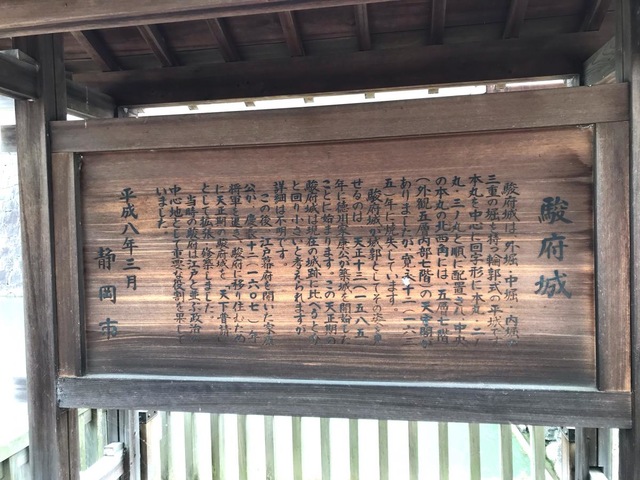 駿府城
駿府城は、外堀・中堀・内堀の
三重の堀を持つ輪郭式の平城です。
本丸を中心に回字形に本丸・二ノ
丸・三ノ丸と順に配置され、中央
の本丸の北西角には、五層七階
（外観五層内部七階）の天守閣が
ありましたが、寛永十二（一六三
五）年に焼失しています。
駿府城が城郭としてその姿を見
せるのは、天正十三（一五八五）
年に徳川家康公が築城を開始した
ことに始まります。この天正期の
駿府城は現在の城跡に比べるとひ
と回り小さいと考えられますが、
詳細は不明です。
この後、江戸幕府を開いた家康
公が、慶長十二（一六〇七）年、
将軍職を退き、駿府に移り住むため
に天正期の駿府城を「天下普請」
として拡張・修築しました。
当時の駿府は江戸と並ぶ政治の
中心地として重要な役割を果して
いました。
平成八年三月
静岡市